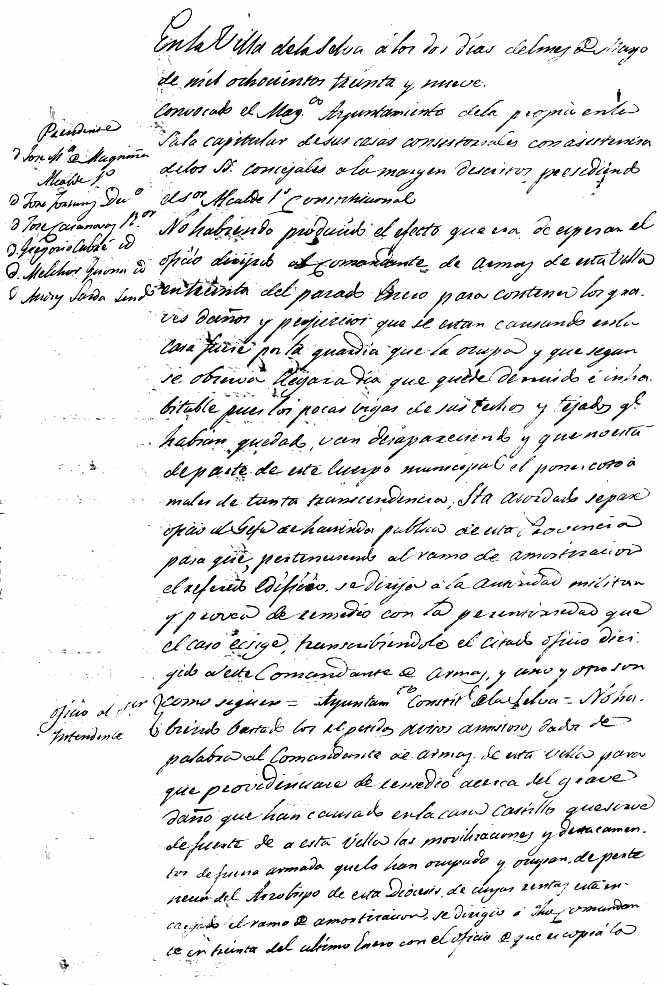 En la Villa de la Selva á los dos dias del mes de Mayo
de mil ochocientos treinta y nueve.
Convocado el Mag.co Ayuntamiento de la propia en la
Sala capitular de sus casas consistoriales con asistencia
de los SS. concejales a la margen descritos, presidiendo
el Sor. Alcalde 1º Constitucional
Presidente
D Jose Mª de Magriñá
Alcalde 1º
D Jose
D Jose Casanovas
D Gregorio id
D Melchor id
D
No habiendo producido el efecto que era de esperar el
oficio dirijido al Comandante de Armas de esta Villa
en treinta del pasado Enero para contener los gra-
ves daños y perjuicios que se estan causando en la
casa fuerte por la guardia que la ocupa y que segun
se observa llegara dia que quede demuido é inha-
bitable pues los pocas vigas de sus techos y tejados q.e
habian quedado, van desapareciendo y que no está
de parte de este Cuerpo municipal el poner coto á
males de tanta transcendencia, Sta acordado se pase
oficio al Gefe de hacienda publica de esta Provincia
para que, perteneciendo al ramo de amortizacion
el referido Edificio, se dirija á la autoridad militar
y provea de remedio con la perentoriedad que
el caso ecsige, transcribiendole el citado oficio diri-
gido a este Comandante de armas, y uno y otro son
como siguen = Ayuntam.to Constit.l de la Selva = No ha-
Oficio al Sor
Intendente
biendo bastado los repetidos avisos amistosos dados de
palabra al Comandante de armas de esta villa para
que providenciare de remedio acerca del grave
daño que han causado en la casa Castillo que sirve
de fuerte de a esta Villa las movilizaciones y destacamen-
tos de fuerza armada que lo han ocupado y ocupan, de perte-
nencia del Arzobispo de esta Diócesis, de cuyas rentas está en-
cargado el ramo de amortizacion, se dirigio á dho Comandan-
te en treinta del ultimo Enero con el oficio de que es copia la